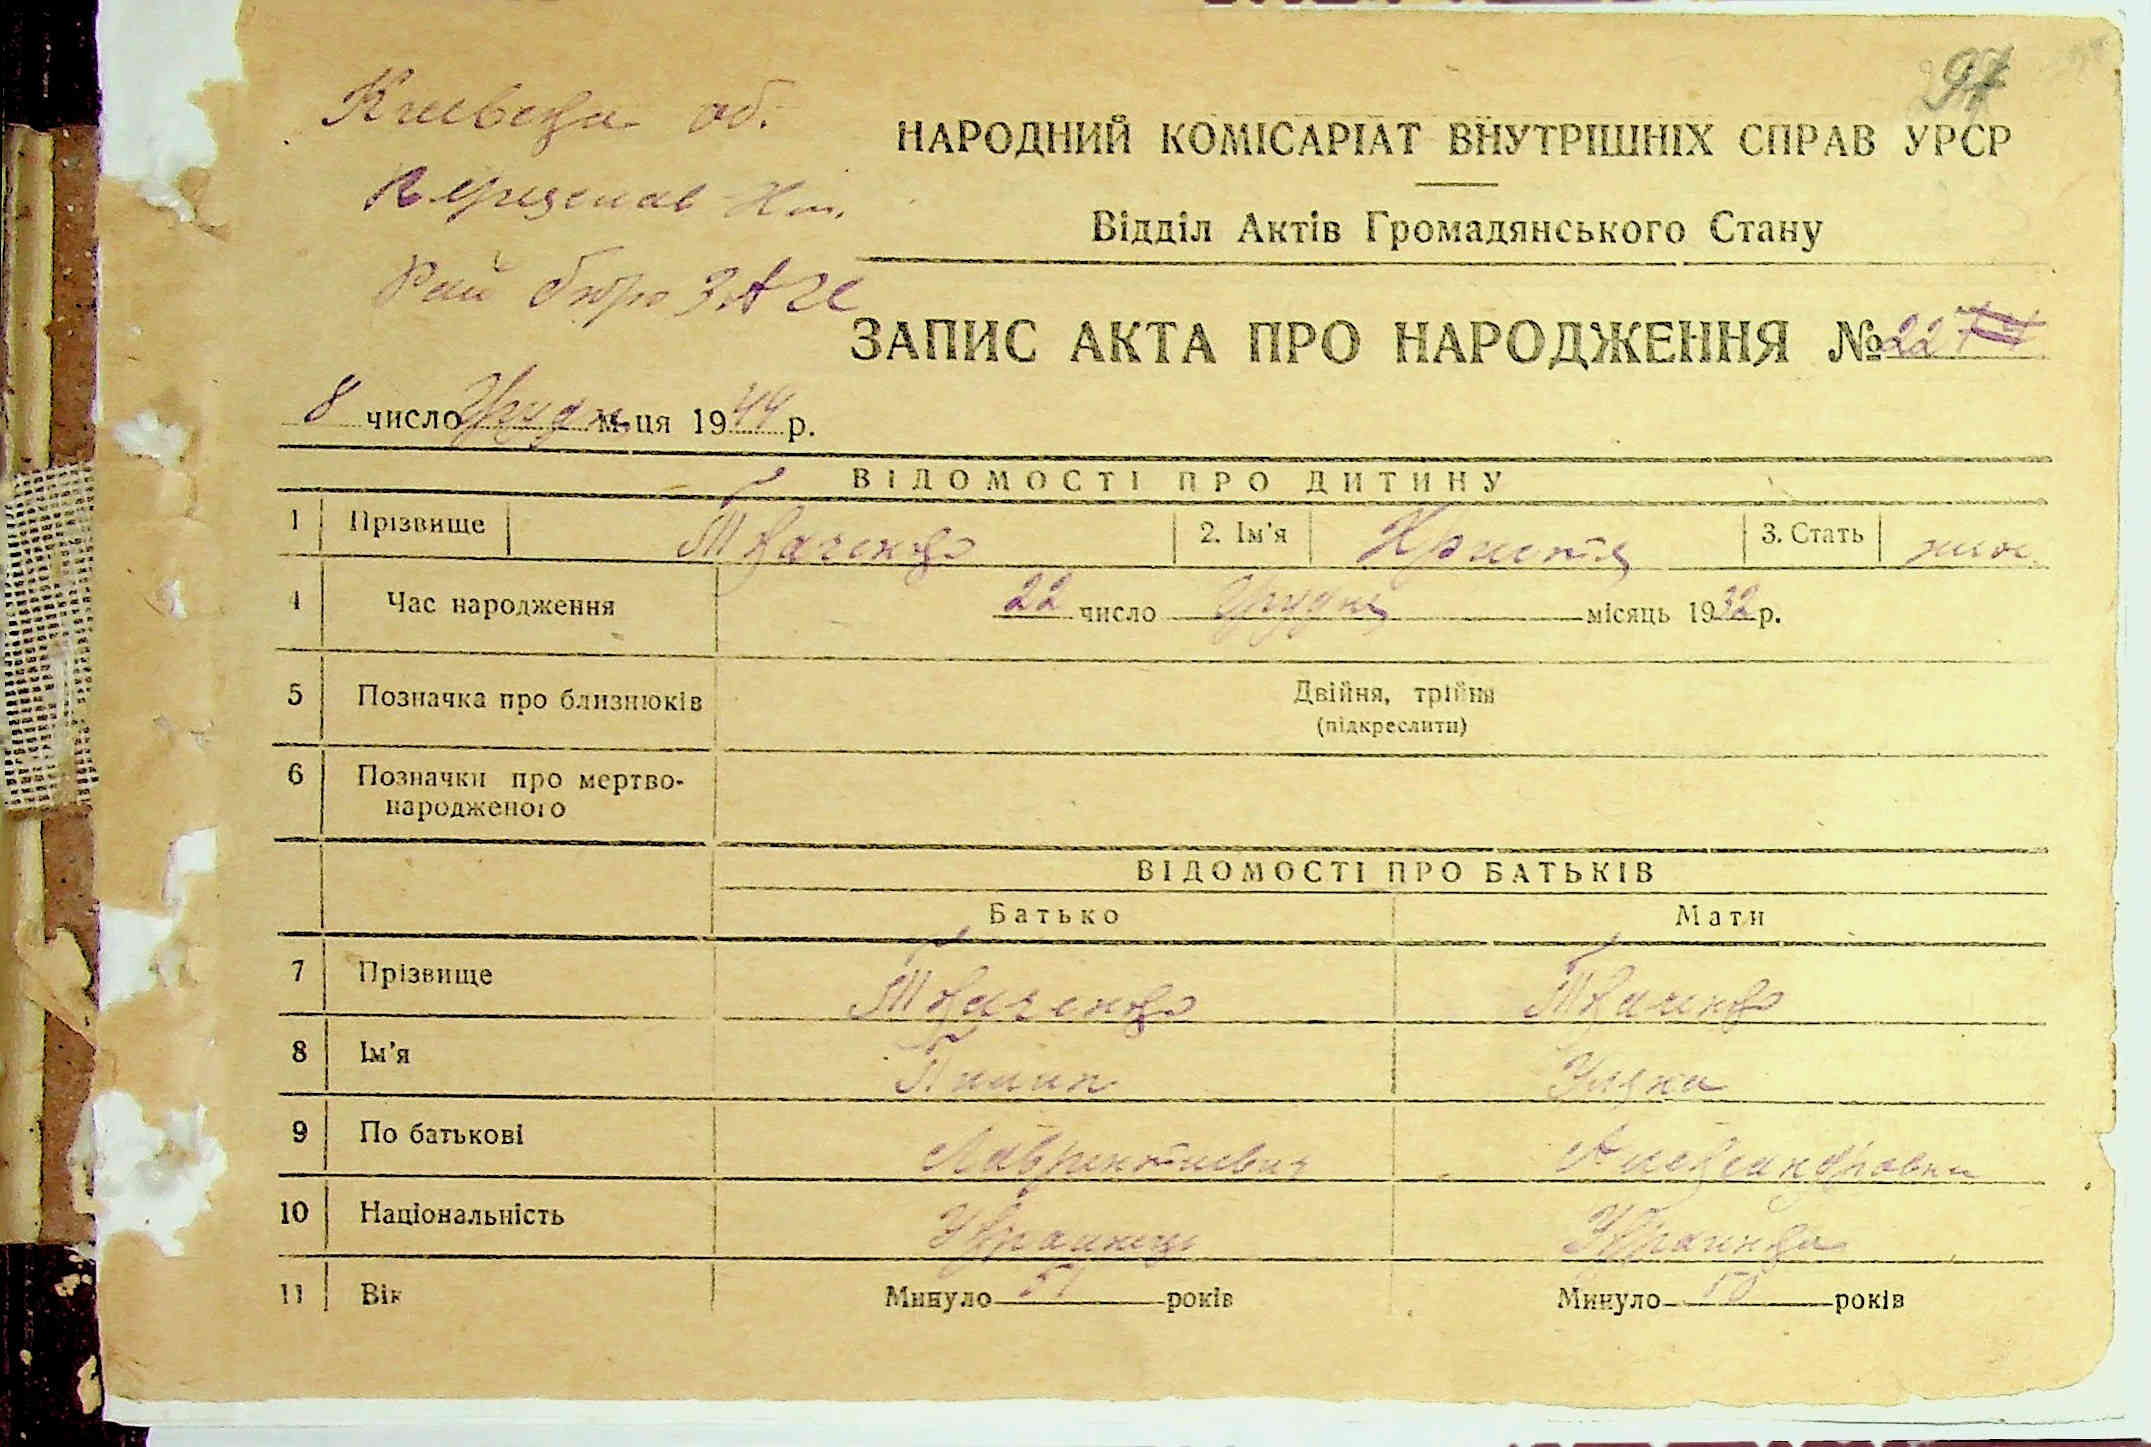 97
Київська об.
Переяслав-Хм.
Рай бюро ЗАГС
НАРОДНИЙ КОМІСАРІАТ ВНУТРІШНІХ СПРАВ УРСР
Відділ Актів Громадянського Стану
ЗАПИС АКТА ПРО НАРОДЖЕННЯ № 227
8 число Грудня м-ця 1944 р.
ВІДОМОСТІ ПРО ДИТИНУ
1 Прізвище Ткаченко 2. Ім'я Христя 3. Стать жін.
4 Час народження 22 число Грудня місяць 1932 р.
5 Позначка про близнюків Двійня, трійня
(підкреслити)
6 Позначки про мертво-
народженого
ВІДОМОСТІ ПРО БАТЬКІВ
Батько Мати
7 Прізвище Ткаченко Ткаченко
8 Ім'я Пилип Уляна
9 По батькові Лаврентиевич Александровна
10 Національність Українець Українка
11 Вік Минуло 51 років Минуло 50 років